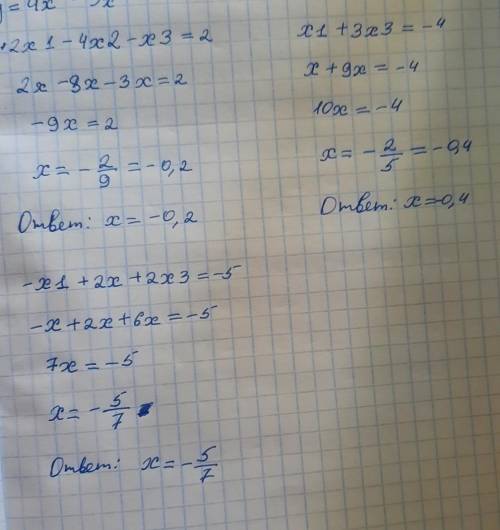 +2x1-4x2-x3=2
2x-8x-3x=2
-9x=2
x=-2/9=-0,2
Ответ: x=-0,2
x1+3x3=-4
x+9x=-4
10x=-4
x=-2/5=-0,4
Ответ: x=-0,4
-x1+2x+2x3=-5
-x+2x+6x=-5
7x=-5
x=-5/7
Ответ: x=-5/7